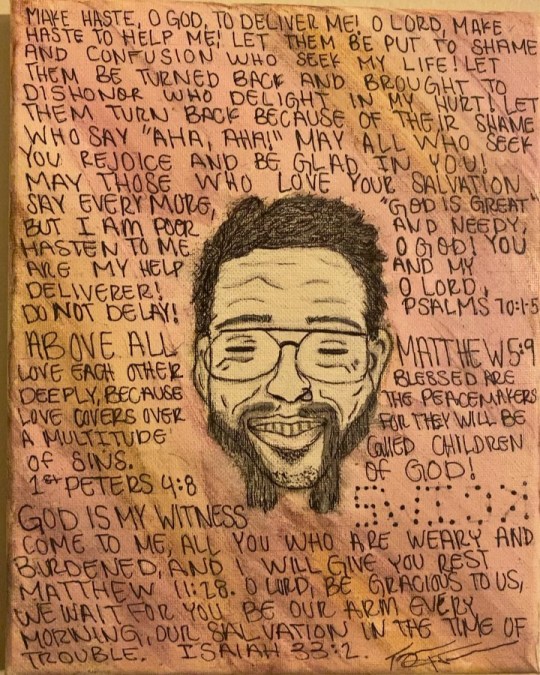 MAKE HASTE, O GOD, TO DELIVER ME! O LORD, MAKE
HASTE TO HELP ME! LET THEM BE PUT TO SHAME
AND CONFUSION WHO SEEK MY LIFE! LET
THEM BE TURNED BACK AND BROUGHT TO
DISHONOR WHO DELIGHT IN MY HURT! LET
THEM TURN BACK BECAUSE OF THEIR SHAME
WHO SAY "AHA, AHA!" MAY ALL WHO SEEK
YOU REJOICE AND BE GLAD IN YOU!
MAY THOSE WHO LOVE YOUR SALVATION
SAY EVERY MORE, "GOD IS GREAT"
BUT I AM POOR AND NEEDY,
HASTEN TO ME O GOD! YOU
ARE MY HELP AND MY
DELIVERER! O LORD,
DO NOT DELAY! PSALMS 70:1-5
ABOVE ALL
LOVE EACH OTHER
DEEPLY, BECAUSE
LOVE COVERS OVER
A MULTITUDE
OF SINS.
1ST PETERS 4:8
MATTHEW 5:9
BLESSED ARE
THE PEACEMAKERS
FOR THEY WILL BE
CALLED CHILDREN
OF GOD!
GOD IS MY WITNESS
COME TO ME, ALL YOU WHO ARE WEARY AND
BURDENED, AND I WILL GIVE YOU REST
MATTHEW 11:28. O LORD, BE GRACIOUS TO US,
WE WAIT FOR YOU. BE OUR ARM EVERY
MORNING, OUR SALVATION IN THE TIME OF
TROUBLE. ISAIAH 33:2.